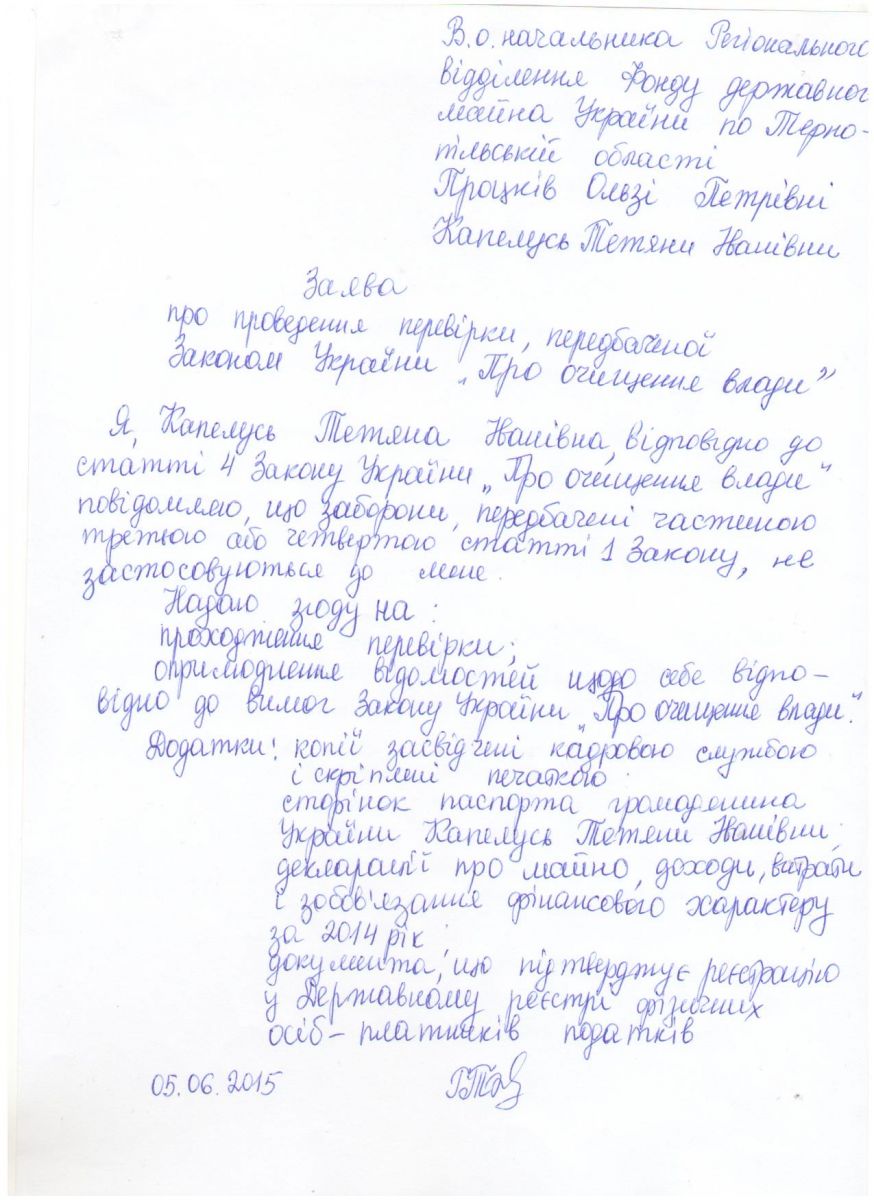 В.о. начальника Регіонального
відділення Фонду державног
майна України по Терно-
пільській області
Процків Ользі Петрівні
Капелусь Тетяни Іванівни
Заява
про проведення перевірки, передбаченої
Законом України „Про очищення влади”
Я, Капелусь Тетяна Іванівна, відповідно до
статті 4 Закону України „Про очищення влади”
повідомляю, що заборони, передбачені частиною
третьою або четвертою статті 1 Закону, не
застосовуються до мене.
Надаю згоду на :
проходження перевірки;
оприлюднення відомостей щодо себе відпо-
відно до вимог Закону України „Про очищення влади”.
Додатки: копії засвідчені кадровою службою
і скріплені печаткою:
сторінок паспорта громадянина
України Капелусь Тетяни Іванівни;
декларації про майно, доходи, витрати
і зобов'язання фінансового характеру
за 2014 рік;
документа, що підтверджує реєстрацію
у Державному реєстрі фізичних
осіб – платників податків
05.06.2015